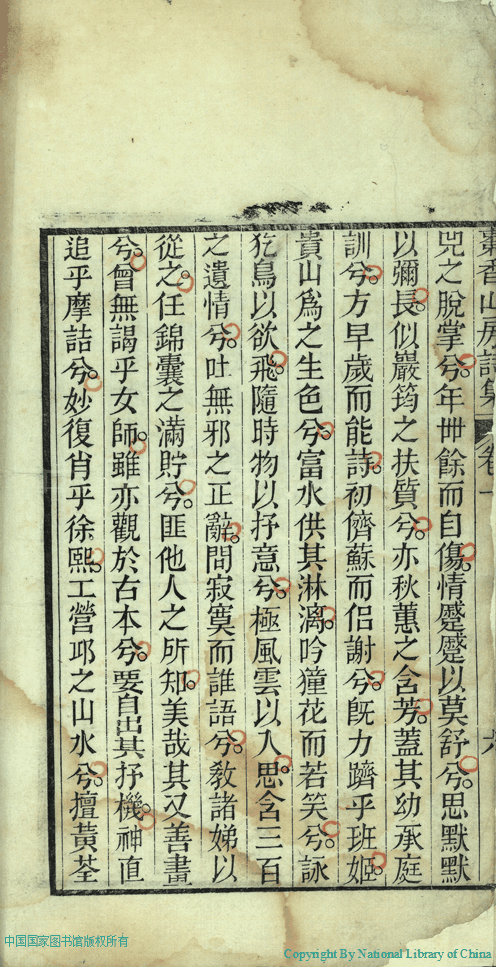 棗香山房詩集 卷一 六
兕之脫掌兮。年卅餘而自傷。情蹙蹙以莫舒兮。思默默
以彌長。似巖筠之扶質兮。亦秋蕙之含芳。蓋其幼承庭
訓兮。方早歲而能詩。初儕蘇而侶謝兮。旣力躋乎班姬。
貴山爲之生色兮。富水供其淋漓。吟獞花而若笑兮。詠
犵鳥以欲飛。隨時物以抒意兮。極風雲以入思。含三百
之遺情兮。吐無邪之正辭。閒寂寞而誰語兮。敎諸娣以
從之。任錦囊之滿貯兮。匪他人之所知。美哉其又善畫
兮。曾無謁乎女師。雖亦觀於古本兮。要自出其抒機。神直
追乎摩詰兮。妙復肖乎徐熙。工營邛之山水兮。擅黃荃
中国国家图书馆版权所有
Copyright By National Library of China